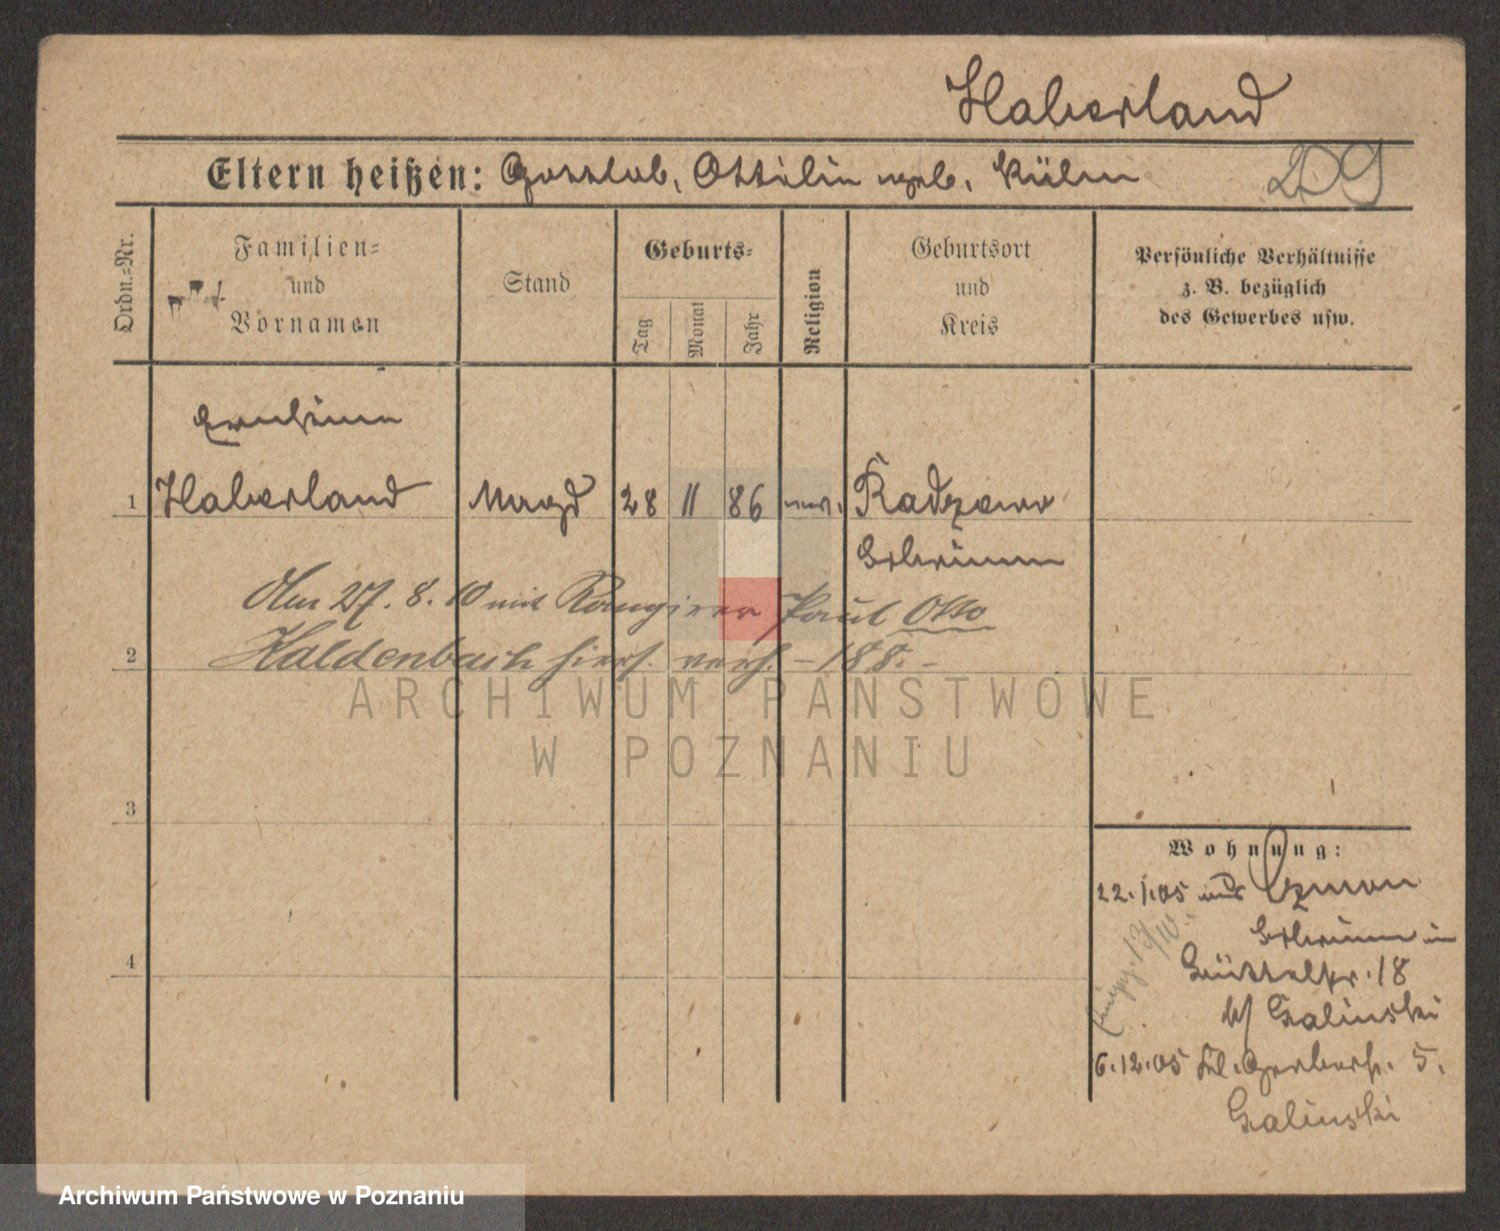 Haberland
Eltern heißen: Gottlob, Ottilie geb. Kühn
Ordn.-Nr.
Familien-
und
Vornamen
Stand
Geburts-
Tag
Monat
Jahr
Religion
Geburtsort
und
Kreis
Persönliche Verhältnisse
z. B. bezüglich
des Gewerbes usw.
Ernestine
1 Haberland Magd 28 11 86 ev. Radzewo
Schrimm
Am 27. 8. 10 mit Rangirer Paul Otto
2 Kaldenbach hiers. verh. – 188. –
3
4
Wohnung:
22. 1. 05 aus
Schrimm in
18
b/ Galinski
6. 12. 05 Kl. Gerberstr. 5.
Galinski
ARCHIWUM PAŃSTWOWE
W POZNANIU
Archiwum Państwowe w Poznaniu